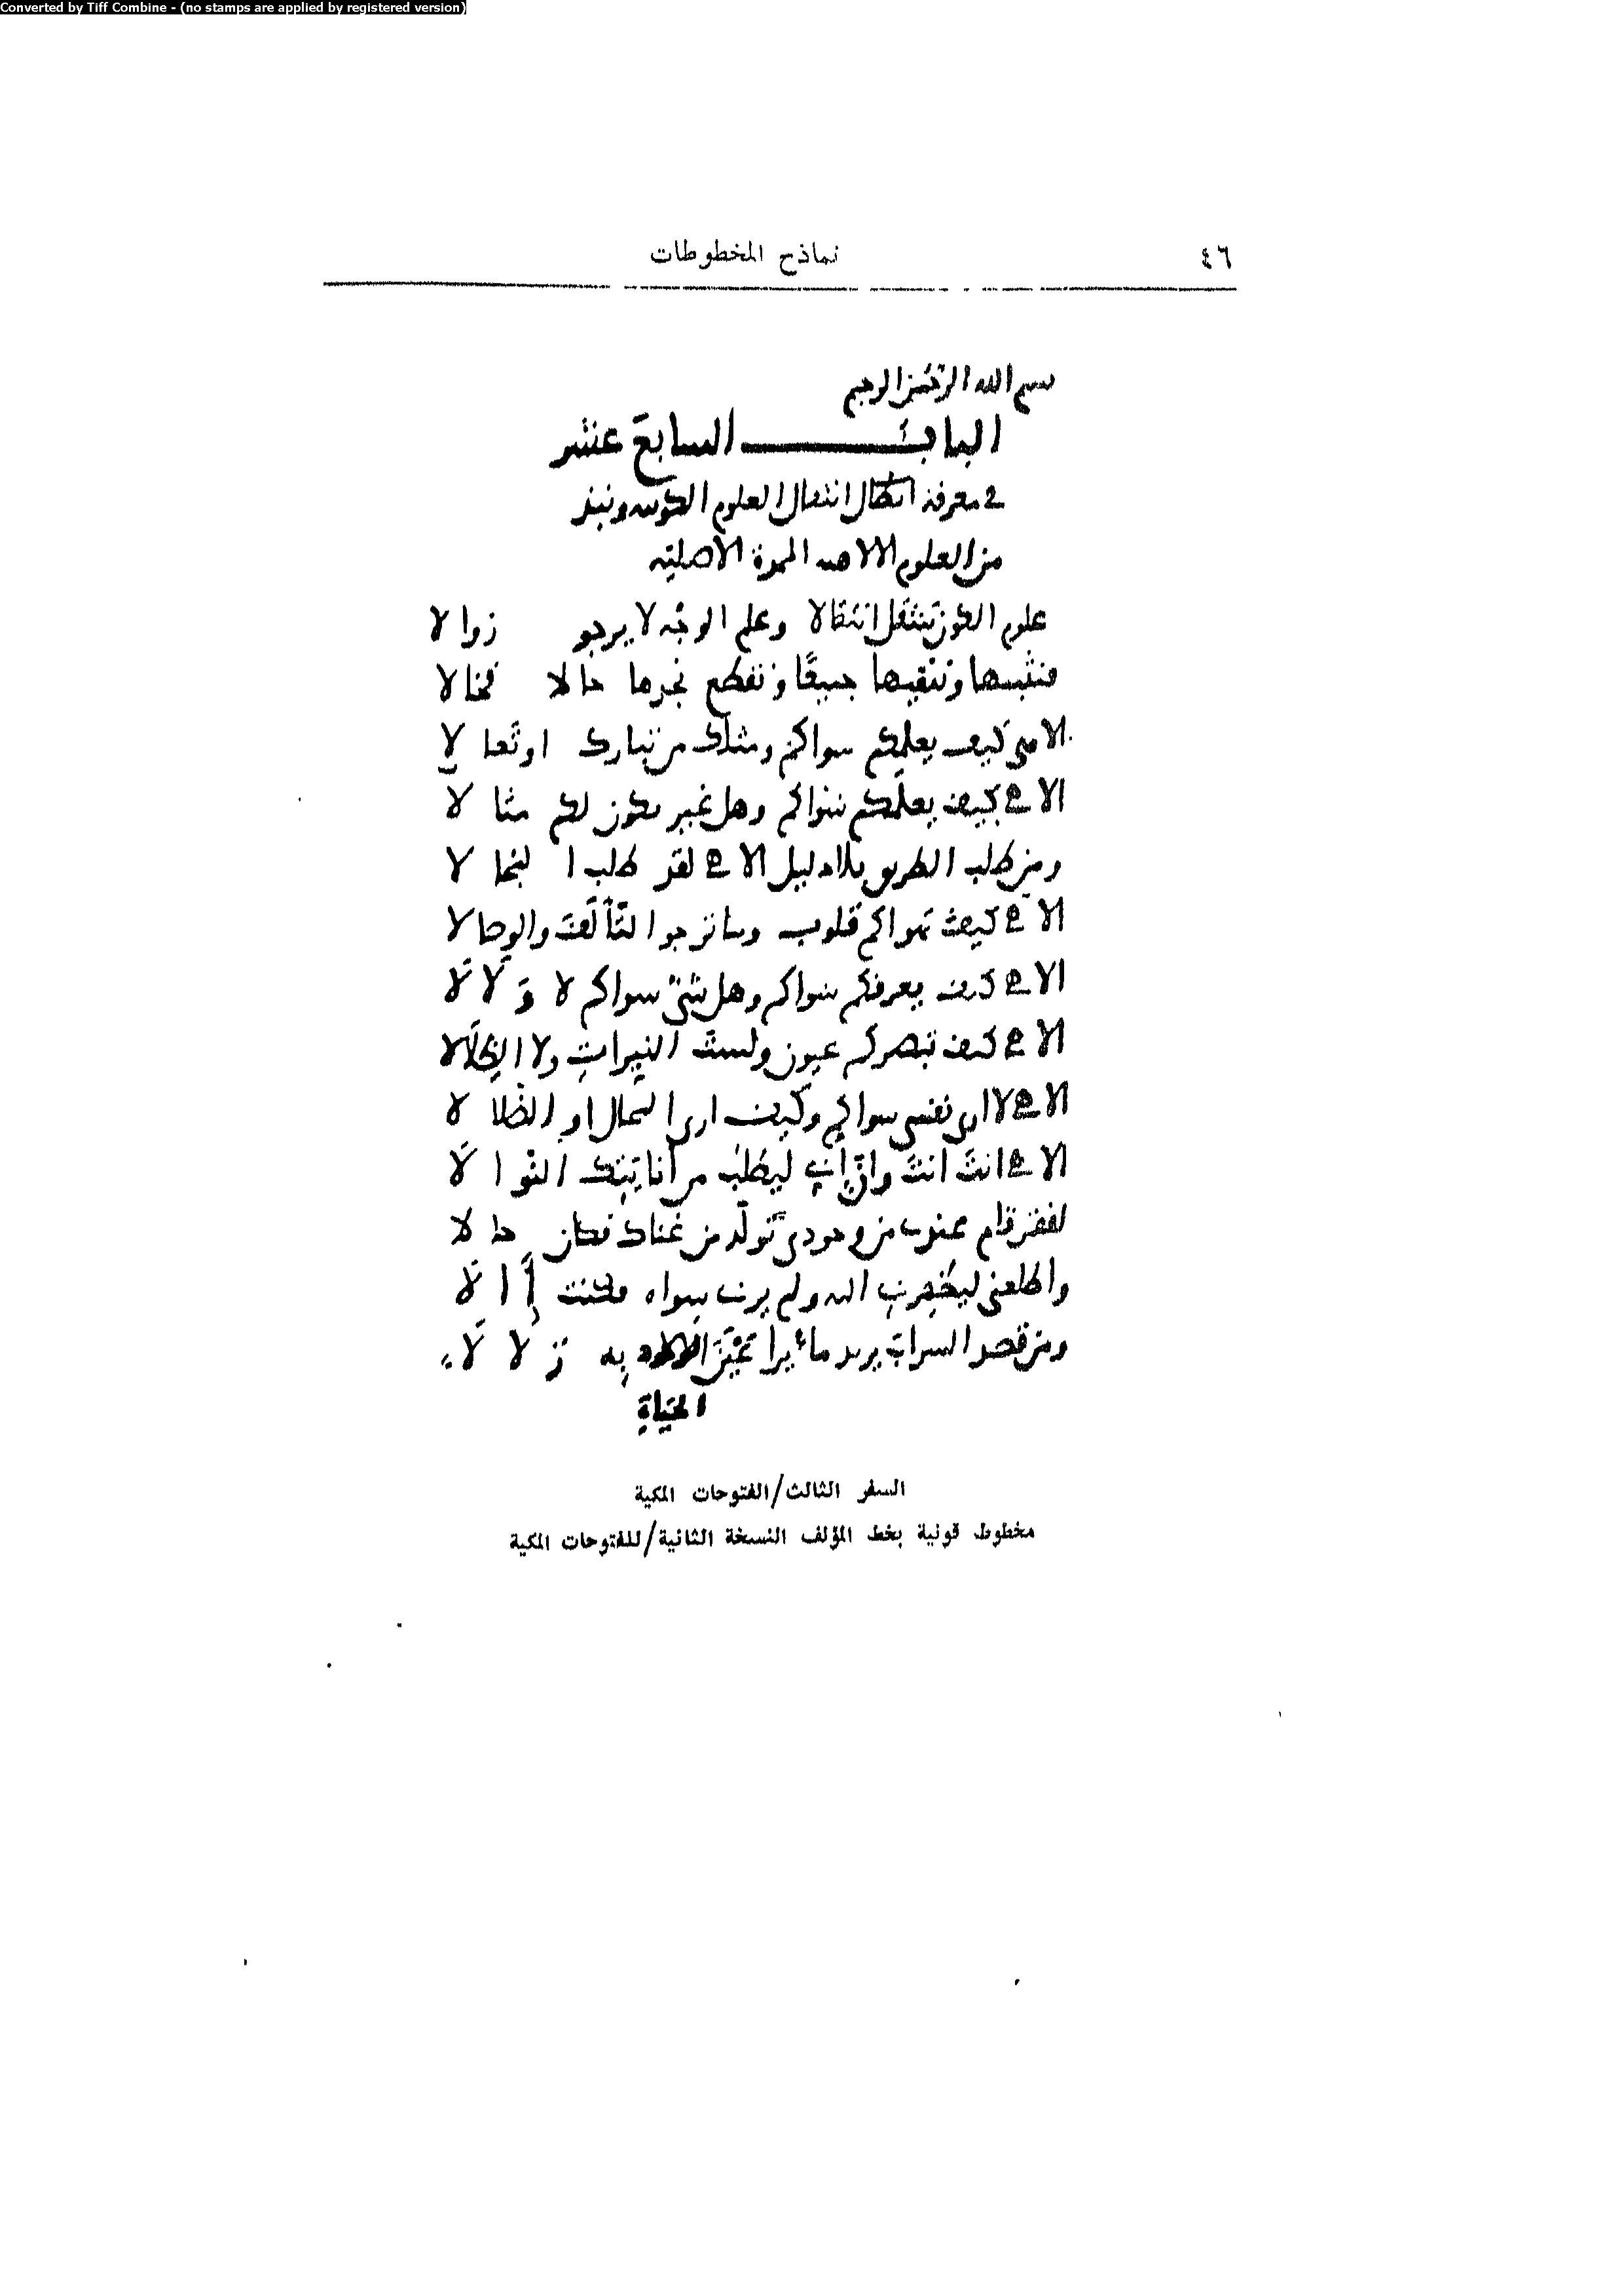 Converted by Tiff Combine - (no stamps are applied by registered version)
٤٦
نماذج المخطوطات
بسم الله الرحمن الرحيم
الباب السابع عشر
في معرفة انتقال العلوم الكونية ونبذ
من العلوم الالاهية الممدة الأصلية
علوم الكون تنتقل انتقالا وعلم الوجه لا يرجو زوالا
فنثبتها وننفيها جميعًا ونقطع نجدها حالا فحالا
الاهي كيف يعلمكم سواكم ومثلك من تبارك او تعالا
الاهي كيف يعلمكم سواكم وهل غير يكون لكم مثالا
ومن طلب الطريق بلا دليل الاهي لقد طلب المحالا
الاهي كيف تهواكم قلوب وما ترجوا التألف والوصالا
الاهي كيف يعرفكم سواكم وهل شيء سواكم لا ولا لا
الاهي كيف تبصركم عيون ولست النيرات ولا الظلالا
الاهي لا ارى نفسي سواكم وكيف ارى المحال او الضلالا
الاهي انت انت وان اني ليطلب من انايتك النوالا
لفقر قام عندي من وجودي تولد من غناك فكان حالا
واطلعني ليظهرني اليه ولم يرني سواه فكنت آلا
ومن قصد السراب يريد ماء يرا عين به زلالا
الحياة
السفر الثالث/الفتوحات المكية
مخطوط قونية بخط المؤلف النسخة الثانية/للفتوحات المكية